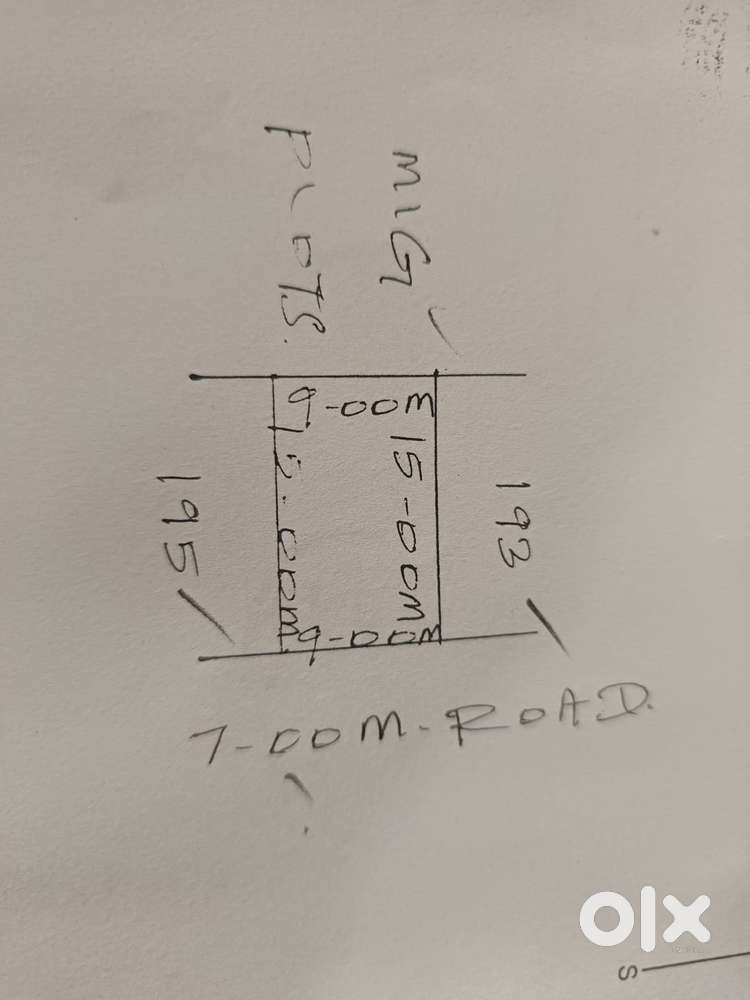 MIG
PLOTS.
9-00M
15-00M
15.00M
9-00M
193
195
7-00M-ROAD.
olx
S